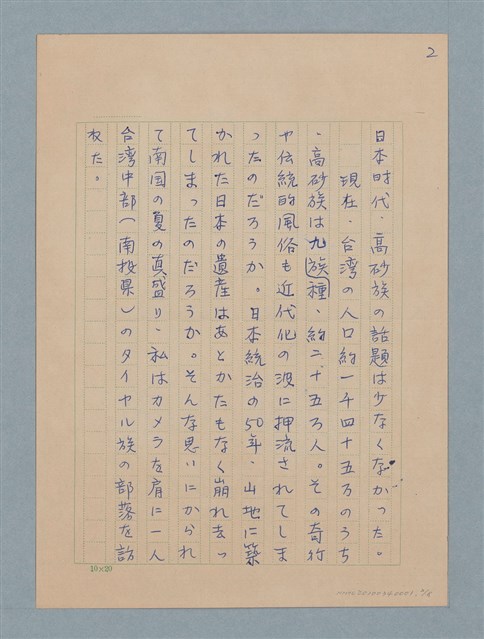 2
日本時代、高砂族の話題は少なくなかった。
現在、台湾の人口約一千四十五万のうち
、高砂族は九族種、約二十五万人。その奇行
や伝統的風俗も近代化の波に押流されてしま
ったのだろうか。日本統治の50年、山地に築
かれた日本の遺産はあとかたもなく崩れ去っ
てしまったのだろうか。そんな思いにかられ
て南国の夏の真盛り、私はカメラを肩に一人
台湾中部(南投県)のタイヤル族の部落を訪
ねた。
10×20